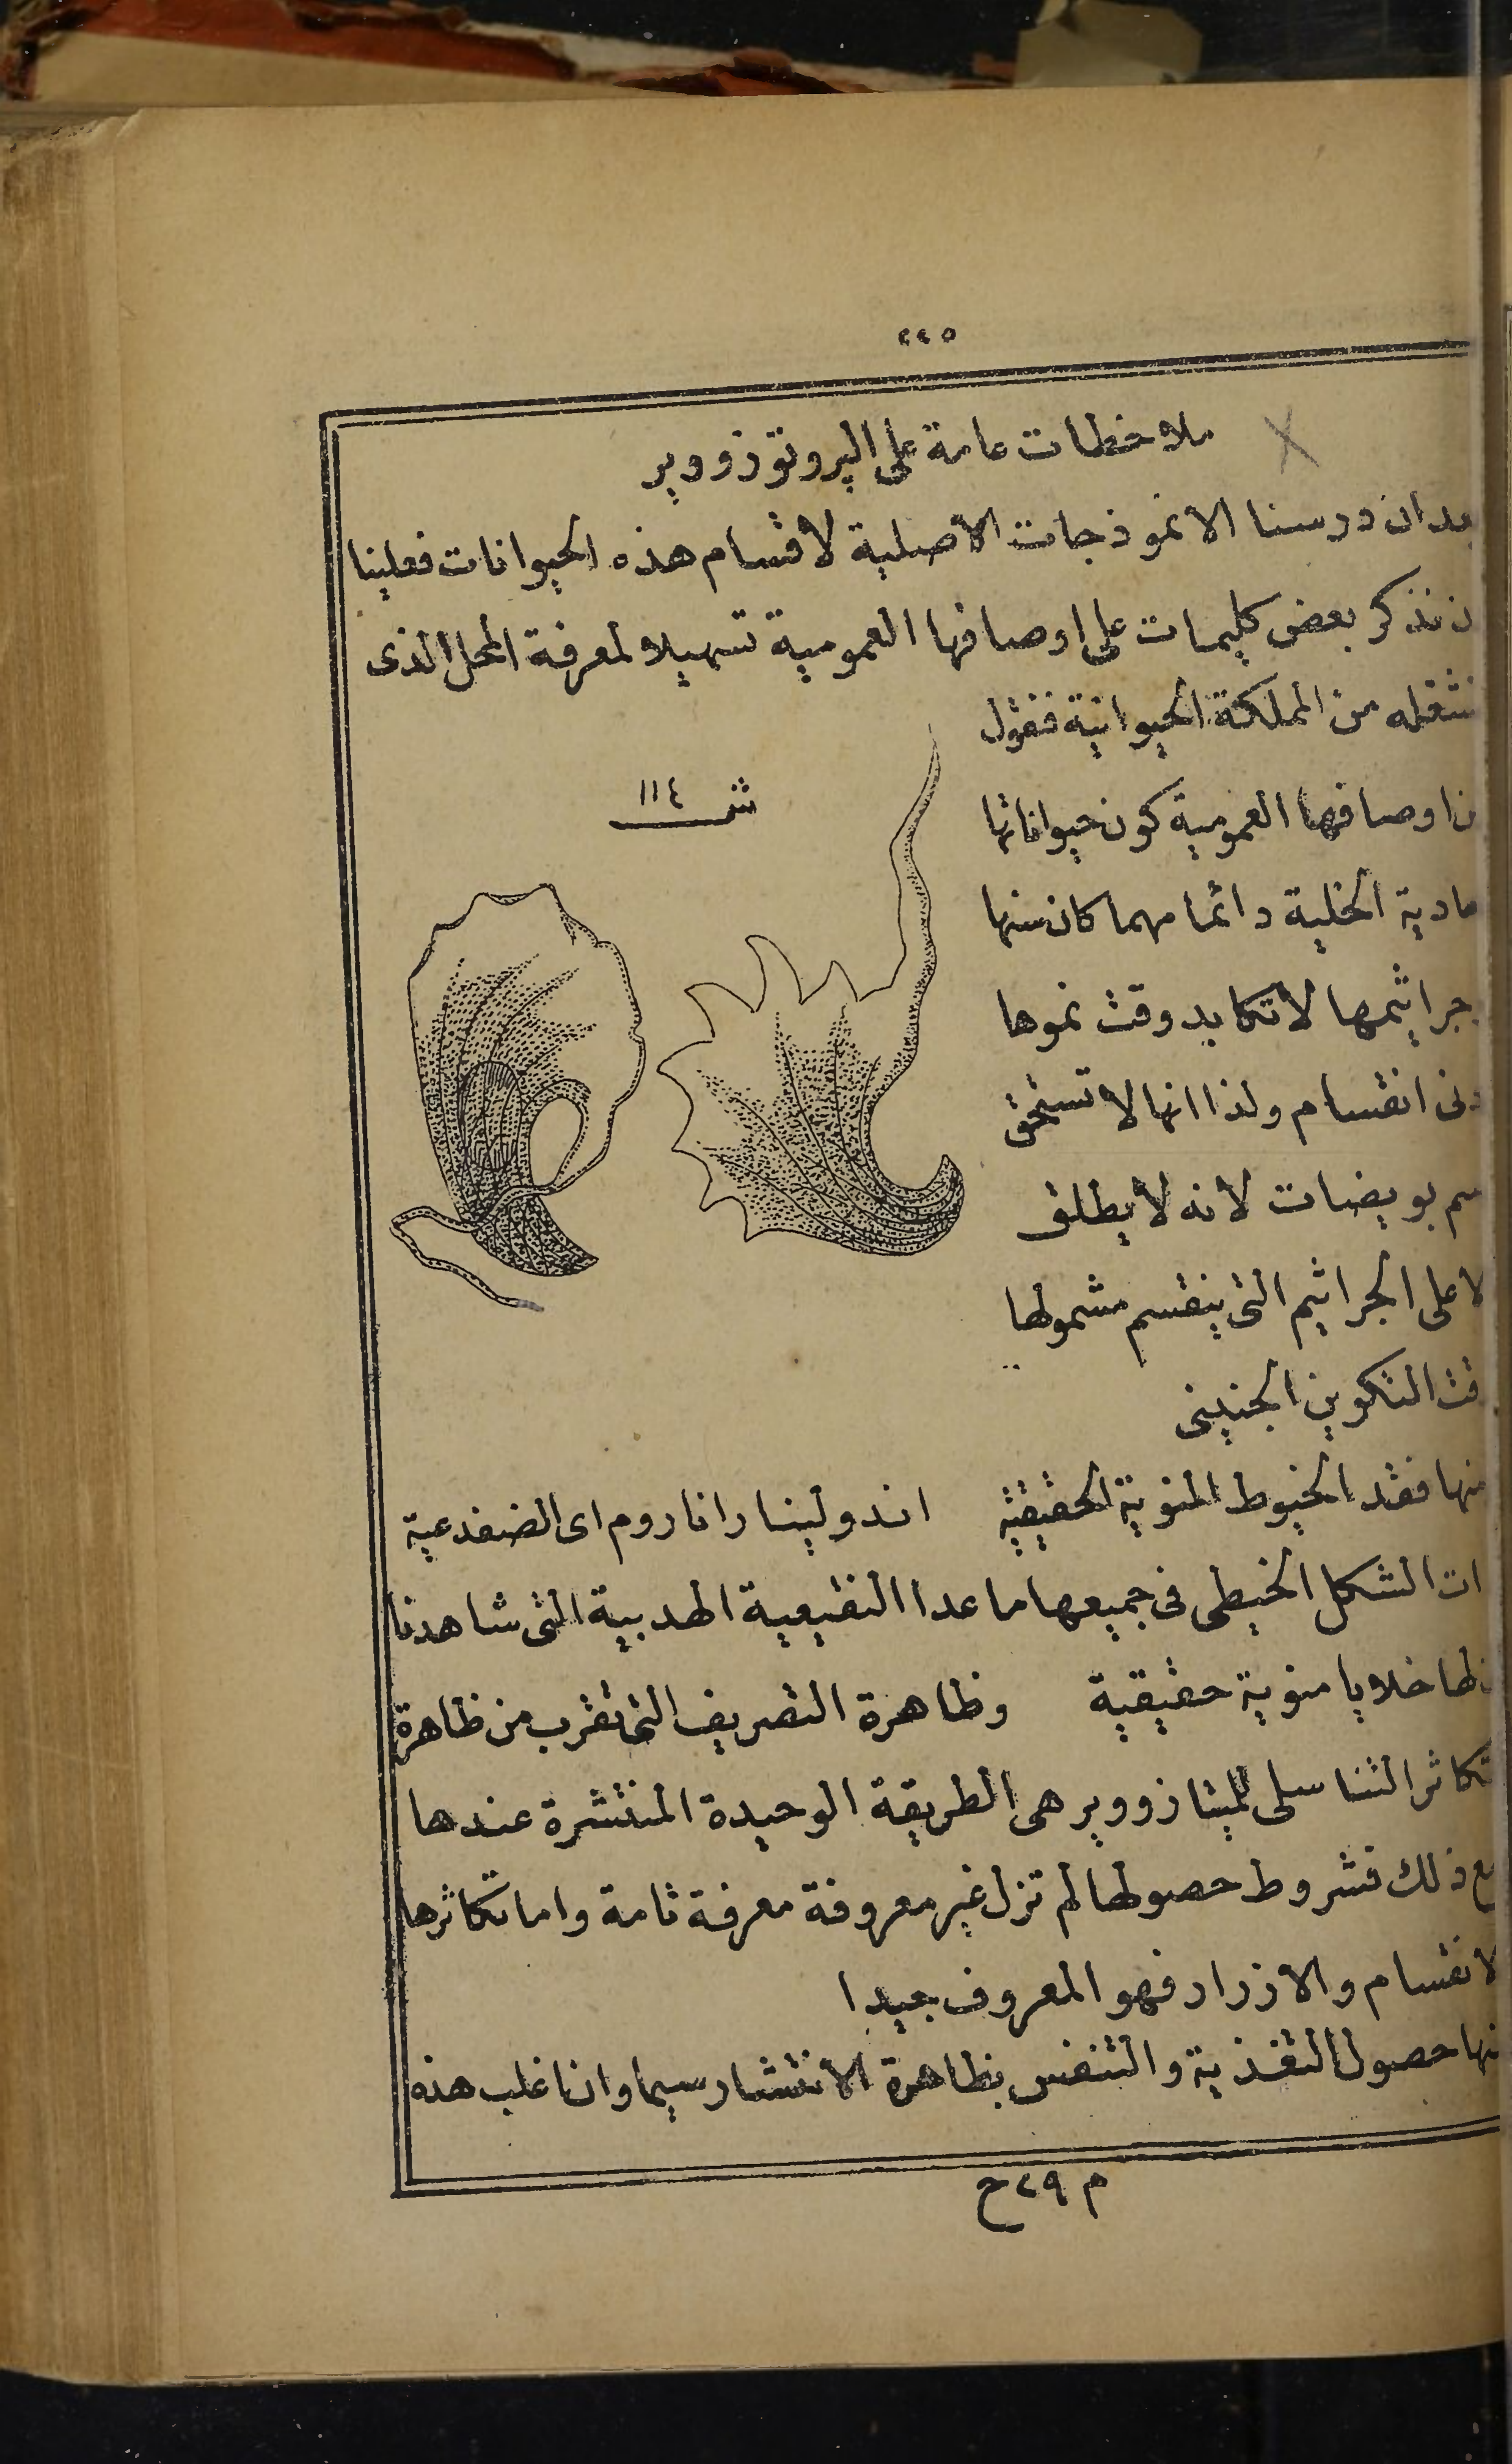 ٤٤٥
ملاحظات عامة على البروتوزووير
بعد ان درسنا الانموذجات الاصلية لاقسام هذه الحيوانات فعلينا
نذكر بعض كليمات على اوصافها العمومية تسهيلا لمعرفة المحل الذى
تشغله من المملكة الحيوانية فنقول
ش ١١٤
اوصافها العمومية كون حيواناتها
الخلية دائما مهما كان سنها
جراثيمها لاتكابد وقت نموها
انقسام ولذا انها لا تستحق
بويضات لانه لا يطلق
على الجراثيم التى ينقسم مشمولها
التكوين الجنينى
منها فقد الخيوط المنوية الحقيقية
اندولينا راناروم اى الضفدعية
الشكل الخيطى فى جميعها ماعدا النقيعية الهدبية التى شاهدنا
لها خلايا منوية حقيقية وظاهرة التصريف التى تقرب من ظاهرة
تكاثر التناسلى للميتازووير هى الطريقة الوحيدة المنتشرة عندها
ذلك فشروط حصولها لم تزل غير معروفة معرفة تامة واما تكاثرها
لانقسام والازرار فهو المعروف جيدا
حصول التغذية والتنفس بظاهرة الانتشار سيما وان اغلب هذه
م ٢٩ ح